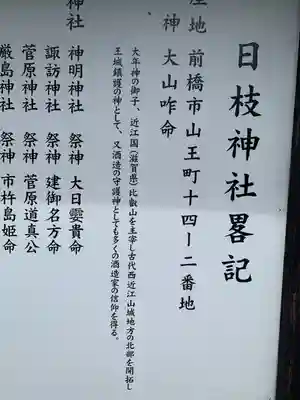 日枝神社畧記
座地 前橋市山王町十四ー二番地
神 大山咋命
大年神の御子、近江国（滋賀県）比叡山を主宰し古代西近江山城地方の北部を開拓し
王城鎮護の神として、又酒造の守護神としても多くの酒造家の信仰を得る。
神社
神明神社 祭神 大日孁貴命
諏訪神社 祭神 建御名方命
菅原神社 祭神 菅原道真公
厳島神社 祭神 市杵島姫命